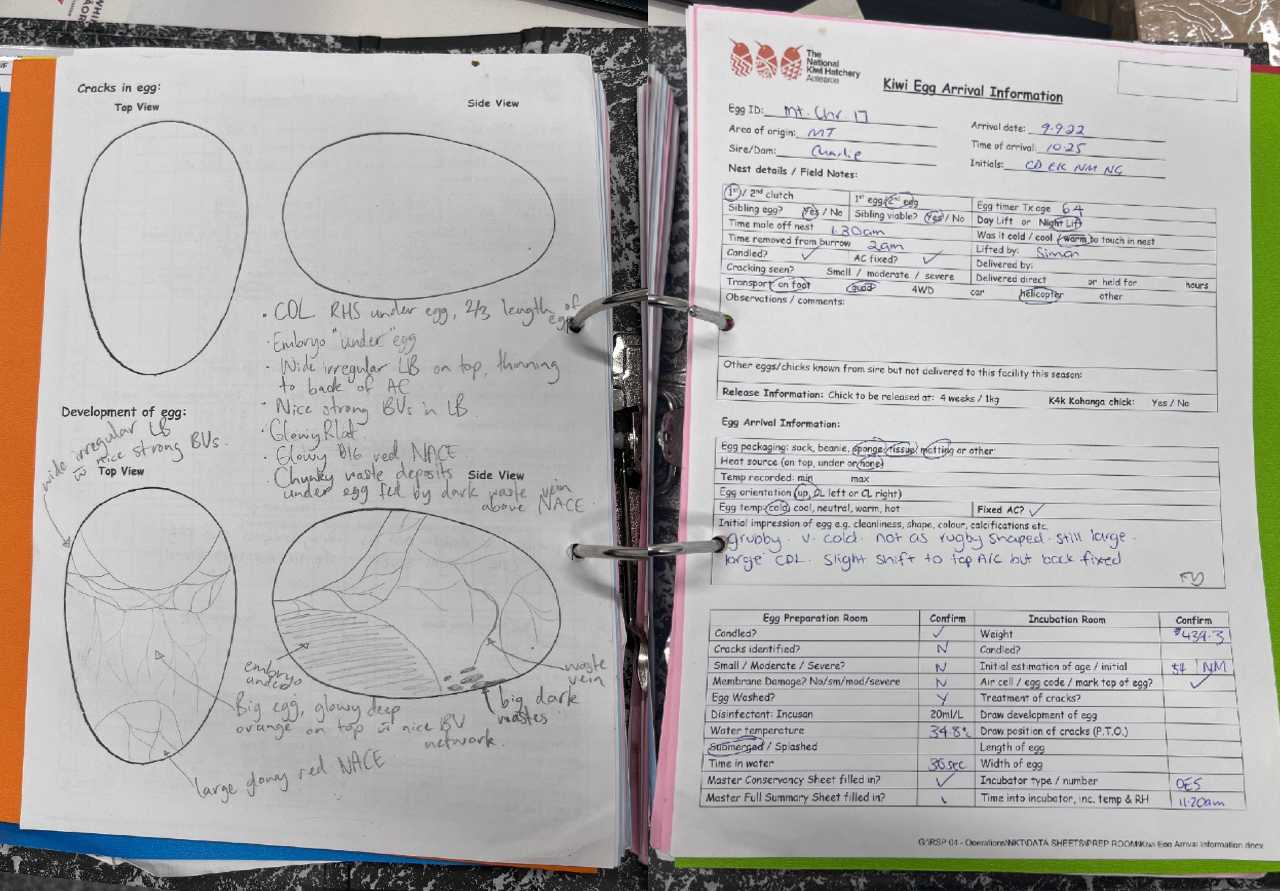 Cracks in egg:
Top View
Side View
· CDL RHS under egg, 2/3 length of egg
· Embryo "under" egg
· Wide irregular LB on top, thinning
to back of AC
· Nice strong BVs in LB
· Glowy Rlat.
· Glowy BIG red NACE
· Chunky waste deposits
under egg fed by dark waste vein
above NACE.
Development of egg:
wide irregular LB
w nice strong BVs.
Top View
Side View
embryo
under
waste
vein
big dark
wastes
Big egg, glowy deep
orange on top w nice BV
network.
large glowy red NACE
The
National
Kiwi Hatchery
Aotearoa
Kiwi Egg Arrival Information
Egg ID: Mt. Chr. 17
Arrival date: 9.9.22
Area of origin: MT
Time of arrival: 10.25
Sire/Dam: Charlie
Initials: CD EK NM NG
Nest details / Field Notes:
1st / 2nd clutch
1st egg / 2nd egg
Egg timer Tx age 64
Sibling egg? Yes / No
Sibling viable? Yes / No
Day Lift or Night Lift
Time male off nest 1.30am
Was it cold / cool / warm to touch in nest
Time removed from burrow 2am
Lifted by: Simon
Candled? ✓
AC fixed? ✓
Delivered by:
Cracking seen? Small / moderate / severe
Delivered direct or held for hours
Transport: on foot quad 4WD car helicopter other
Observations / comments:
Other eggs/chicks known from sire but not delivered to this facility this season:
Release Information: Chick to be released at: 4 weeks / 1kg K4k Kohanga chick: Yes / No
Egg Arrival Information:
Egg packaging: sock, beanie, sponge, tissue, matting or other:
Heat source (on top, under or none)
Temp recorded: min max
Egg orientation (up, CL left or CL right)
Egg temp: cold, cool, neutral, warm, hot
Fixed AC? ✓
Initial impression of egg e.g. cleanliness, shape, colour, calcifications etc.
grubby. v. cold. not as rugby shaped. still large.
large CDL. slight shift to top A/C but back fixed
Egg Preparation Room Confirm Incubation Room Confirm
Candled? ✓ Weight 439.3
Cracks identified? N Candled?
Small / Moderate / Severe? N Initial estimation of age / initial 54 NM
Membrane Damage? No/sm/mod/severe N Air cell / egg code / mark top of egg? ✓
Egg Washed? Y Treatment of cracks?
Disinfectant: Incusan 20ml/L Draw development of egg
Water temperature 34.8°c Draw position of cracks (P.T.O.)
Submerged / Splashed Length of egg
Time in water 30sec Width of egg
Master Conservancy Sheet filled in? ✓ Incubator type / number OE5
Master Full Summary Sheet filled in? Time into incubator, inc. temp & RH 11.20am
G:\RSP 04 - Operations\NKT\DATA SHEETS\PREP ROOM\Kiwi Egg Arrival Information.docx